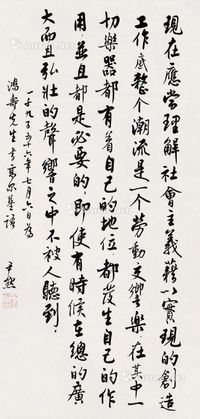 現在應當理解社會主義穫實現的創造
工作底整个潮流是一个勞動交響樂在其中一
切樂器都有着自己的地位都發生自己的作
用並且都是必要的即使有時候在總的廣
大而且弘壯的聲響之中不被人聽到
一千九百五十六年七月六日為
鴻壽先生書高尔基語
尹默